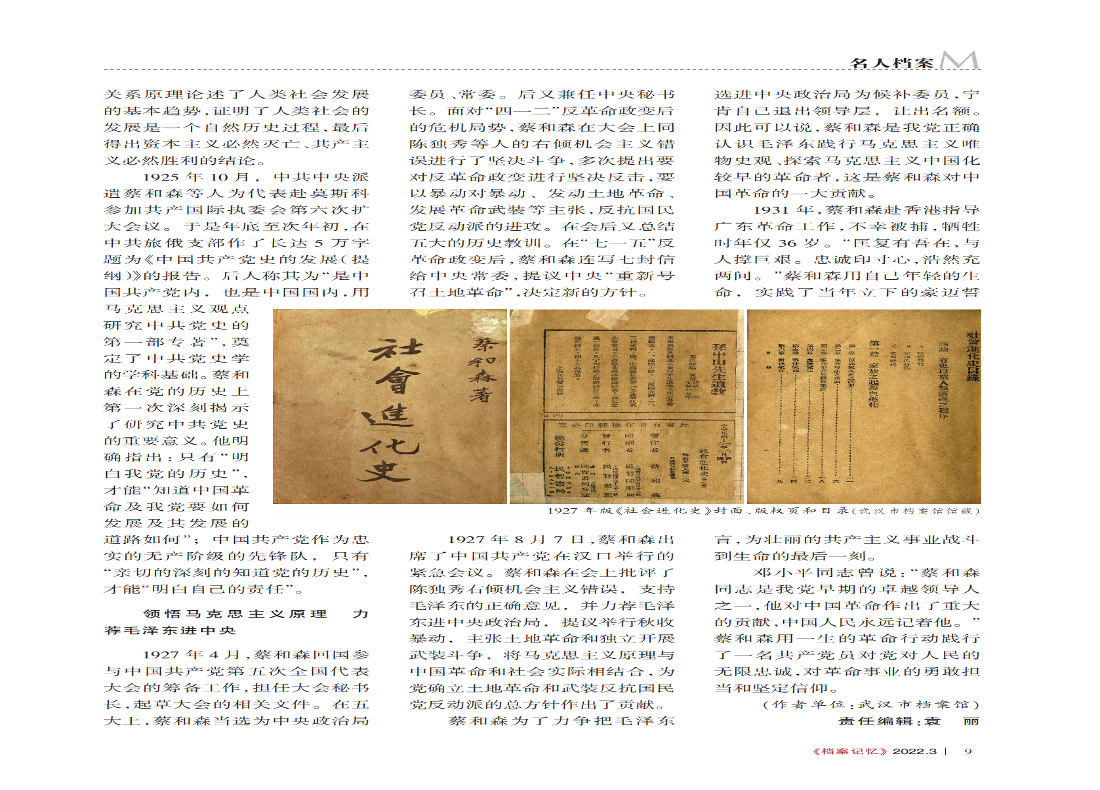 名人档案
关系原理论述了人类社会发展
的基本趋势,证明了人类社会的
发展是一个自然历史过程,最后
得出资本主义必然灭亡、共产主
义必然胜利的结论。
1925 年 10 月，中共中央派
遣蔡和森等人为代表赴莫斯科
参加共产国际执委会第六次扩
大会议。于是年底至次年初，在
中共旅俄支部作了长达 5 万字
题为《中国共产党史的发展(提
纲)》的报告。后人称其为“是中
国共产党内，也是中国国内,用
马克思主义观点
研究中共党史的
第一部专著”,奠
定了中共党史学
的学科基础。蔡和
森在党的历史上
第一次深刻揭示
了研究中共党史
的重要意义。他明
确指出:只有“明
白我党的历史”,
才能“知道中国革
命及我党要如何
发展及其发展的
道路如何”；中国共产党作为忠
实的无产阶级的先锋队，只有
“亲切的深刻的知道党的历史”,
才能“明白自己的责任”。
领悟马克思主义原理 力
荐毛泽东进中央
1927 年 4 月,蔡和森回国参
与中国共产党第五次全国代表
大会的筹备工作,担任大会秘书
长,起草大会的相关文件。在五
大上,蔡和森当选为中央政治局
委员、常委。后又兼任中央秘书
长。面对“四一二”反革命政变后
的危机局势,蔡和森在大会上同
陈独秀等人的右倾机会主义错
误进行了坚决斗争,多次提出要
对反革命政变进行坚决反击,要
以暴动对暴动、发动土地革命、
发展革命武装等主张,反抗国民
党反动派的进攻。在会后又总结
五大的历史教训。在“七一五”反
革命政变后,蔡和森连写七封信
给中央常委,提议中央“重新号
召土地革命”,决定新的方针。
选进中央政治局为候补委员,宁
肯自己退出领导层，让出名额。
因此可以说,蔡和森是我党正确
认识毛泽东践行马克思主义唯
物史观、探索马克思主义中国化
较早的革命者,这是蔡和森对中
国革命的一大贡献。
1931 年,蔡和森赴香港指导
广东革命工作,不幸被捕,牺牲
时年仅 36 岁。“匡复有吾在,与
人撑巨艰。忠诚印寸心,浩然充
两间。”蔡和森用自己年轻的生
命，实践了当年立下的豪迈誓
蔡和森著
社會進化史
孫中山先生遺教
社會進化史目錄
1927 年版《社会进化史》封面、版权页和目录(武汉市档案馆馆藏)
1927 年 8 月 7 日,蔡和森出
席了中国共产党在汉口举行的
紧急会议。蔡和森在会上批评了
陈独秀右倾机会主义错误，支持
毛泽东的正确意见，并力荐毛泽
东进中央政治局，提议举行秋收
暴动，主张土地革命和独立开展
武装斗争，将马克思主义原理与
中国革命和社会实际相结合,为
党确立土地革命和武装反抗国民
党反动派的总方针作出了贡献。
蔡和森为了力争把毛泽东
言,为壮丽的共产主义事业战斗
到生命的最后一刻。
邓小平同志曾说:“蔡和森
同志是我党早期的卓越领导人
之一,他对中国革命作出了重大
的贡献,中国人民永远记着他。”
蔡和森用一生的革命行动践行
了一名共产党员对党对人民的
无限忠诚,对革命事业的勇敢担
当和坚定信仰。
(作者单位:武汉市档案馆)
责任编辑:袁 丽
《档案记忆》 2022.3 | 9